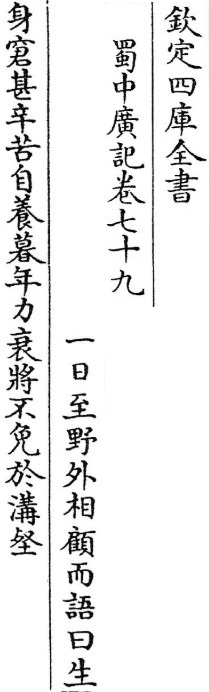 欽定四庫全書
蜀中廣記卷七十九
一日至野外相顧而語曰生
身窘甚辛苦自養暮年力衰將不免於溝壑